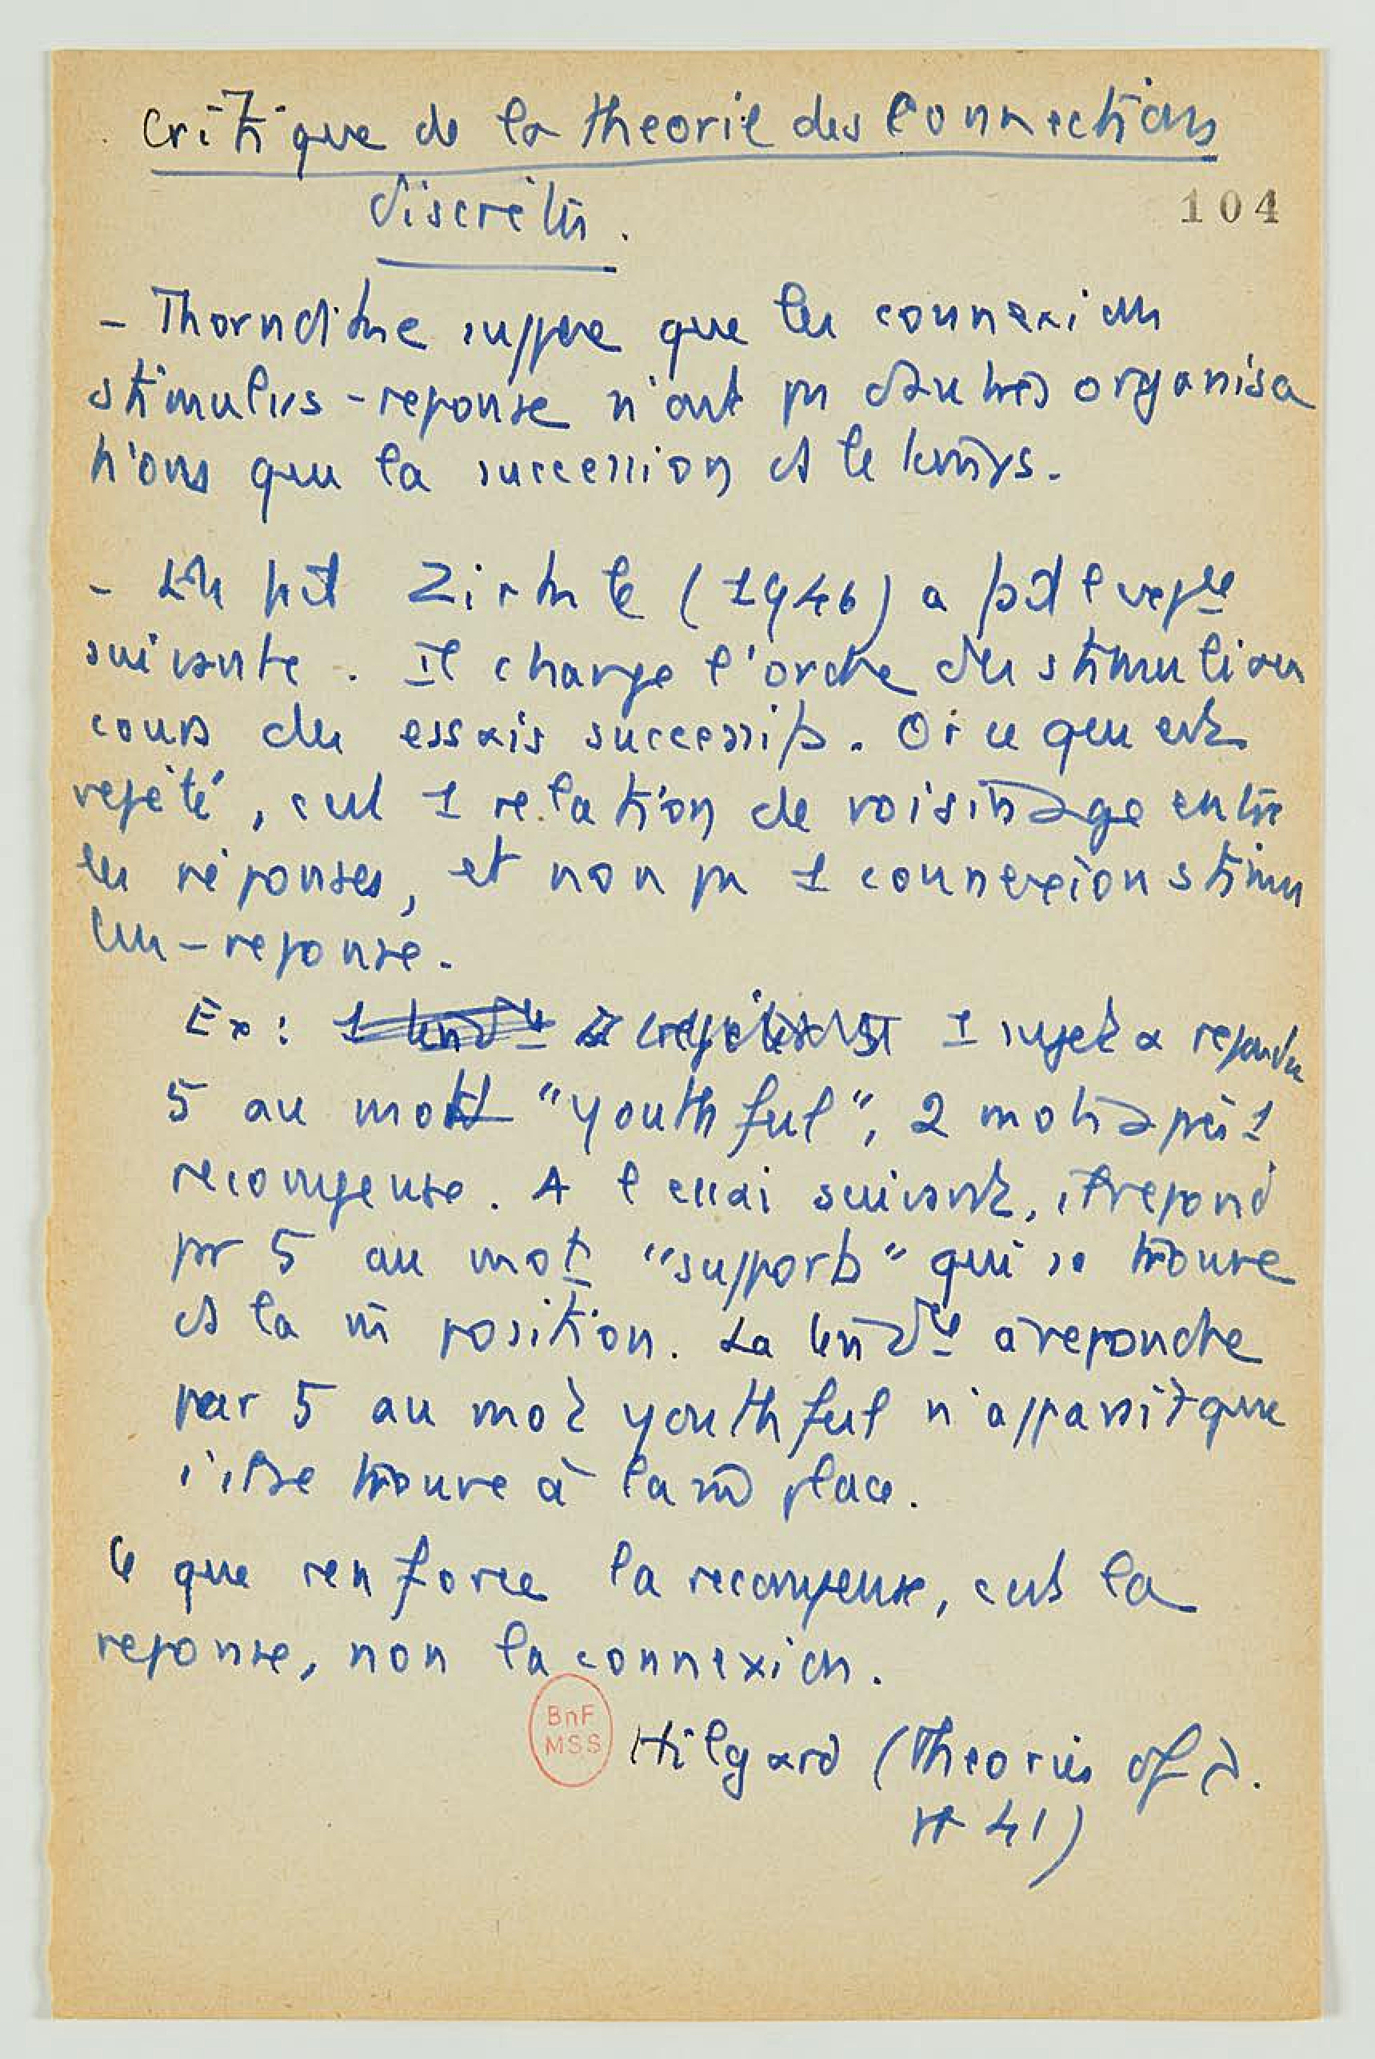 Critique de la theorie des connections
discrètes.
104
- Thorndike suppose que les connexions
stimulus-reponse n'ont pas d'autres organisa
tions que la succession et le temps.
- En fait Zirkle (1946) a fait l'expce
suivante. Il change l'ordre des stimuli au
cours des essais successifs. Or ce qui est
repété, c'est 1 relation de voisinage entre
les réponses, et non pas 1 connexion stimu
lus-reponse.
Ex: 1 tendce à 1 sujet a repondu
5 au mot "youthful", 2 mots après 1
recompense. A l essai suivant, il repond
pr 5 au mot "support" qui se trouve
et la m̄ position. La tendce à repondre
par 5 au mot youthful n'apparait que
s'il se trouve à la m̄ place.
Ce que renforce la recompense, c'est la
reponse, non la connexion.
BnF
MSS
Hilgard (Theories of
41)